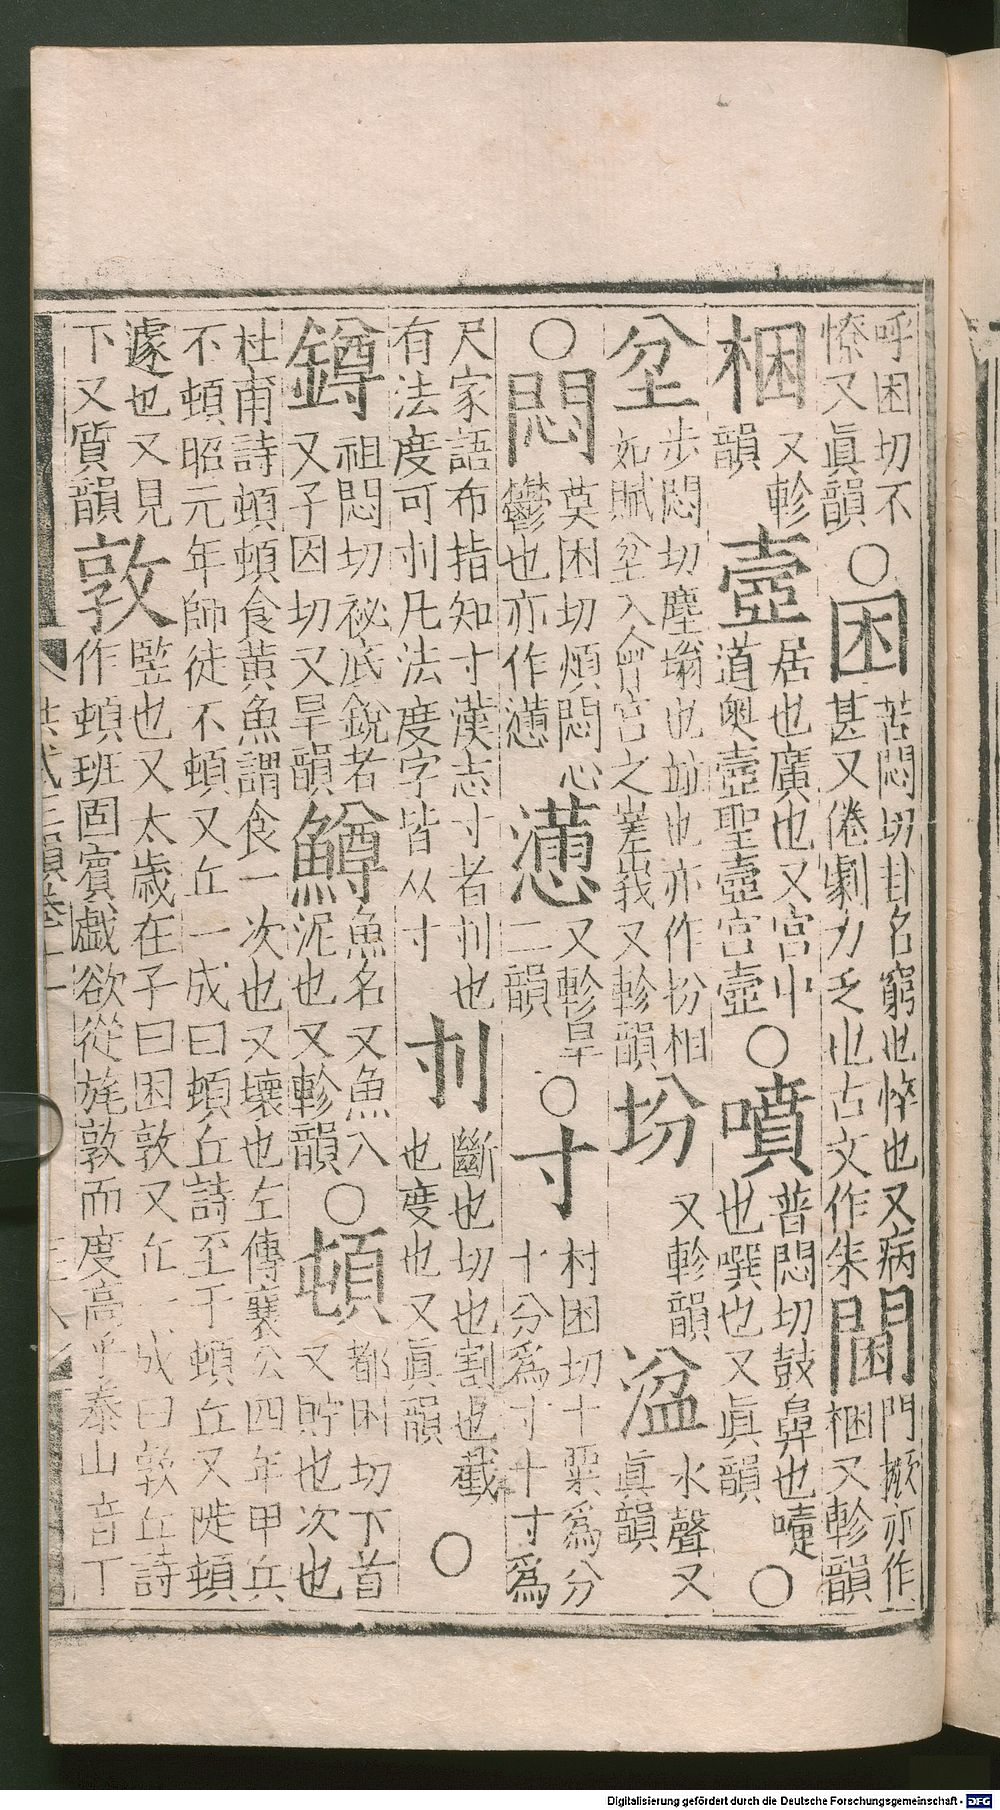 呼困切不
憭又眞韻
○困
苦悶切卦名窮也悴也又病
甚又倦劇力乏也古文作朱
閫
門橛亦作
梱又軫韻
梱
又軫
韻
壼
居也廣也又宮中
道奥壼聖壼宮壼
○噴
普悶切鼓鼻也嚏
也噀也又眞韻
○
坌
步悶切塵塕也竝也亦作扮相
如賦坌入曾宮之嵳峩又軫韻
坋
又軫韻
湓
水聲又
眞韻
○悶
莫困切煩悶心
鬱也亦作懣
懣
又軫旱
二韻
○寸
村困切十粟爲分
十分爲寸十寸爲
尺家語布指知寸漢志寸者刌也
有法度可刌凡法度字皆从寸
刌
斷也切也割也截
也度也又眞韻
○
鐏
祖悶切祕底銳者
又子因切又旱韻
鱒
魚名又魚入
泥也又軫韻
○頓
都困切下首
又貯也次也
杜甫詩頓頓食黃魚謂食一次也又壞也左傳襄公四年甲兵
不頓昭元年師徒不頓又丘一成曰頓丘詩至于頓丘又陡頓
遽也又見
下又質韻
敦
竪也又太歲在子曰困敦又丘一成曰敦丘詩
作頓班固賓戲欲從旄敦而度高乎泰山音丁
Digitalisierung gefördert durch die Deutsche Forschungsgemeinschaft - DFG